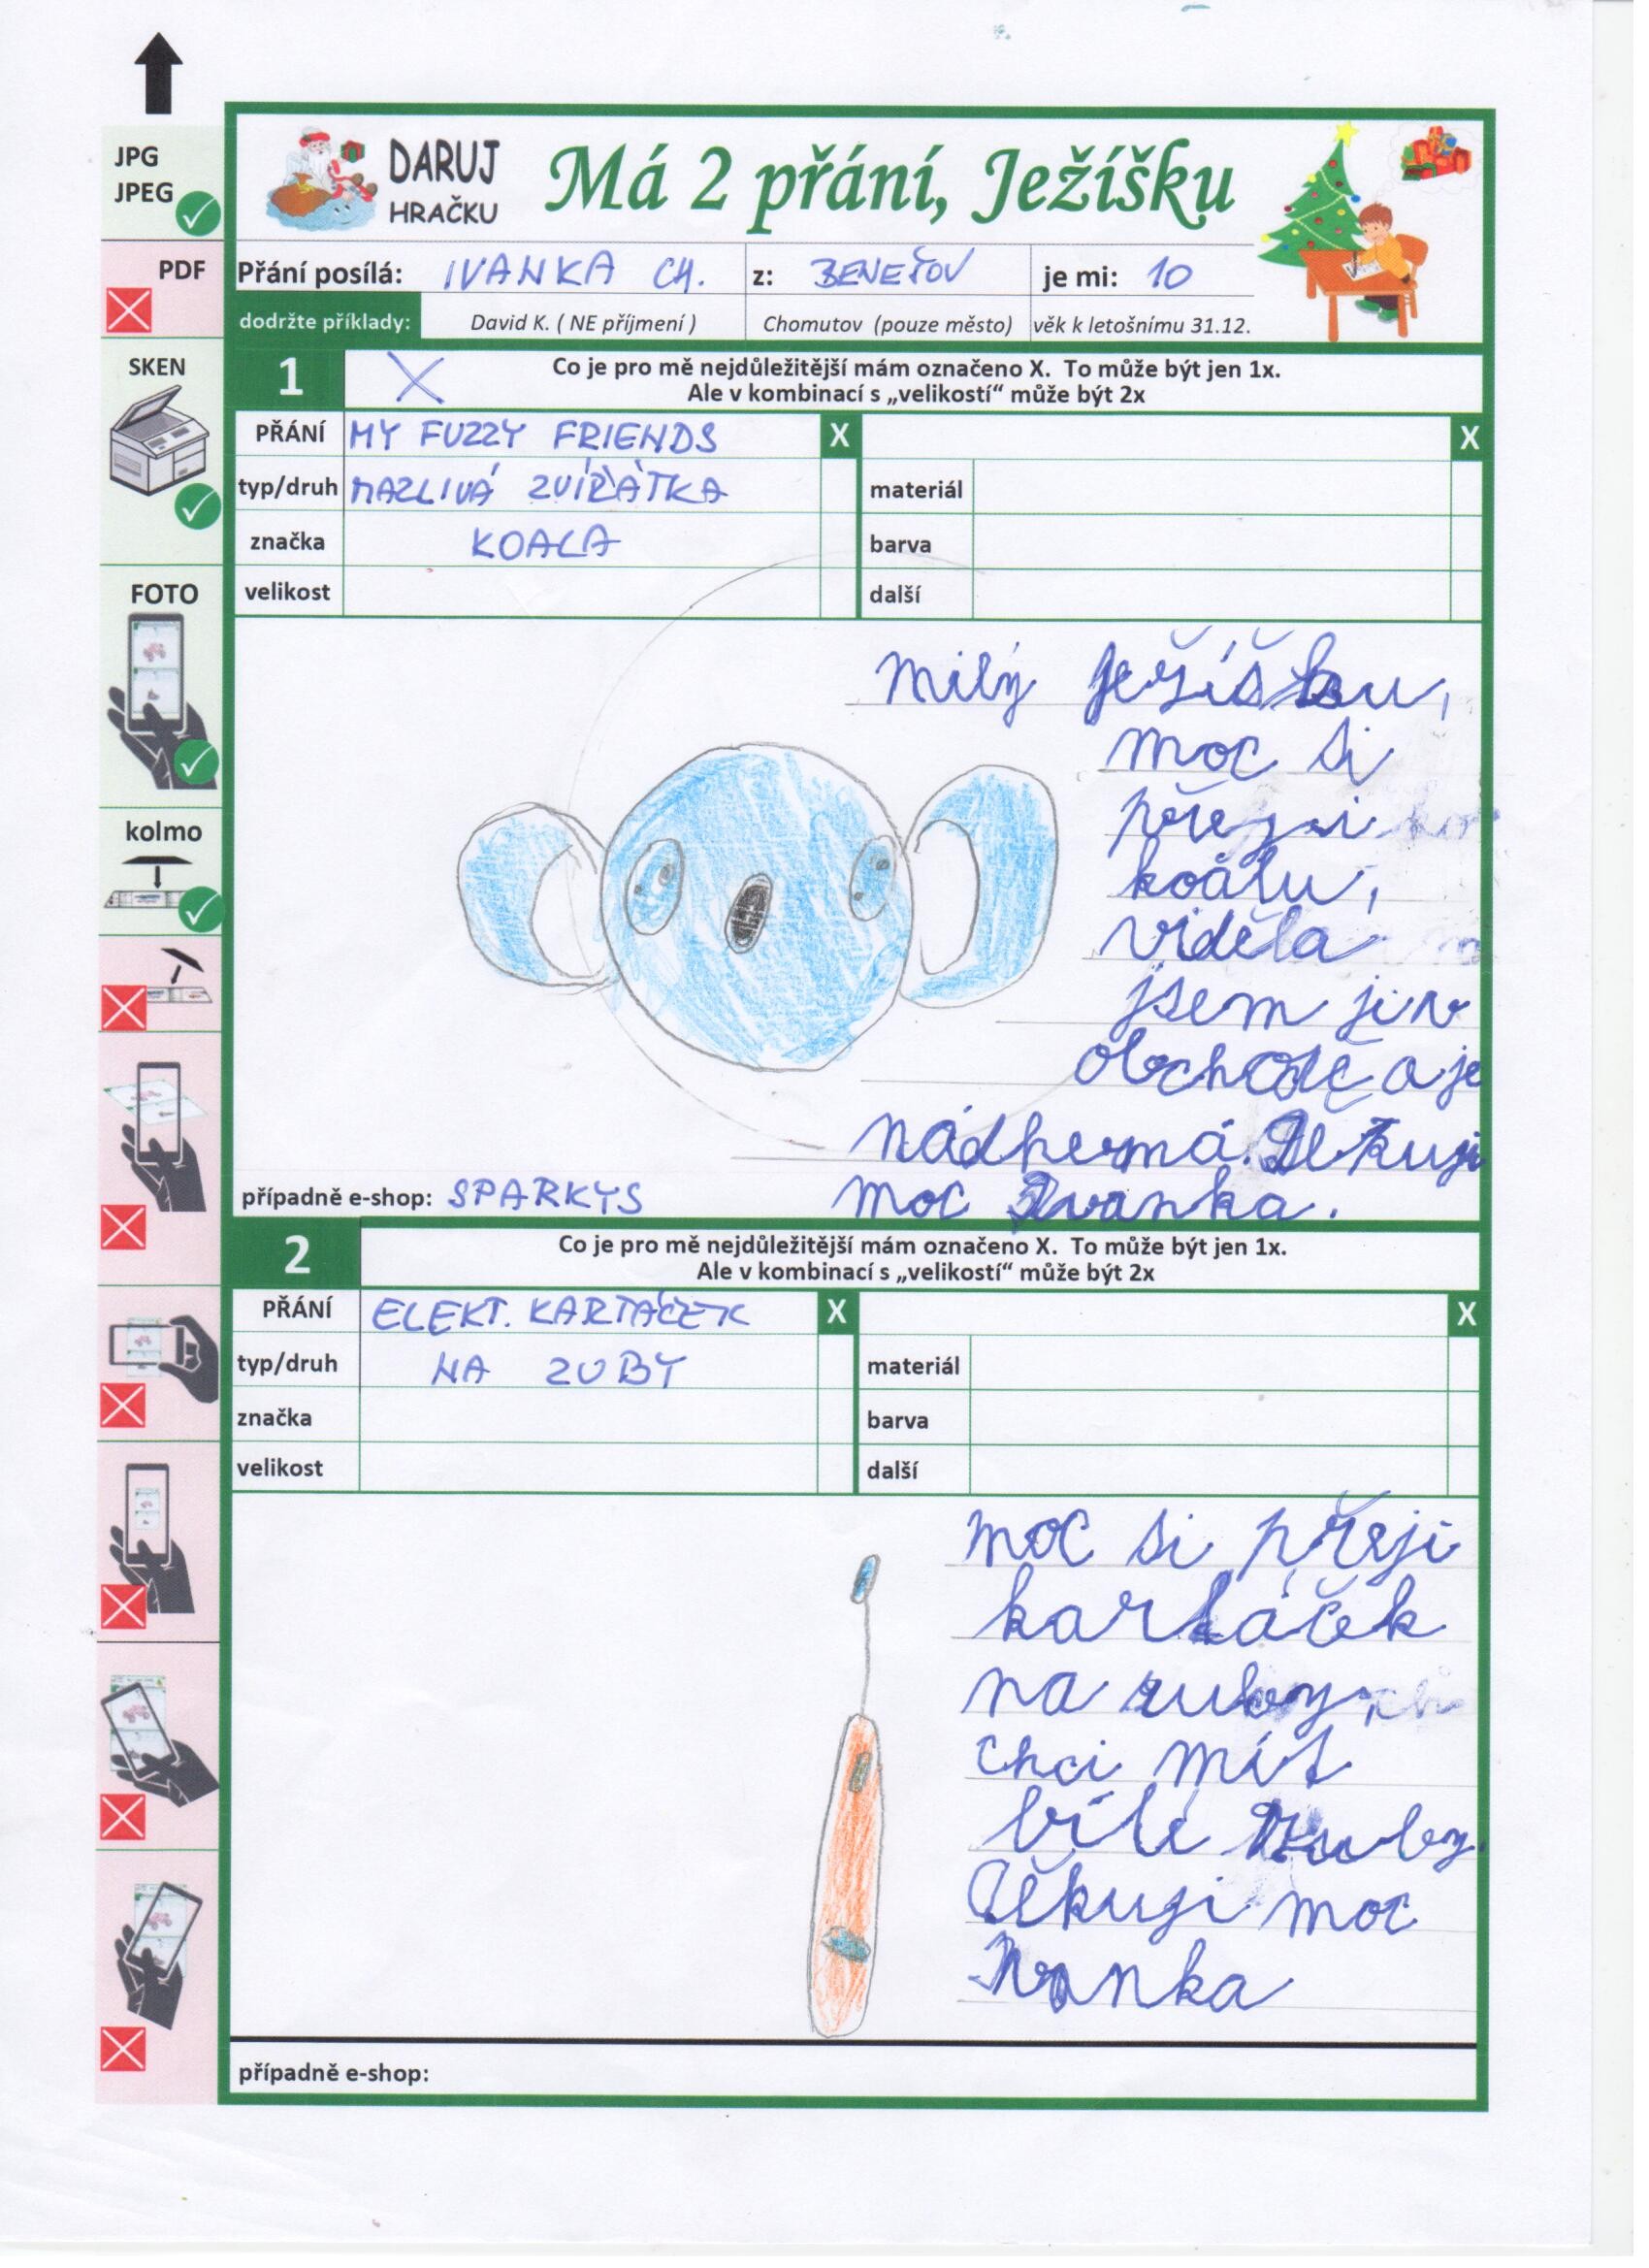 JPG
JPEG
PDF
SKEN
FOTO
kolmo
DARUJ
HRAČKU
Má 2 přání, Ježíšku
Přání posílá: IVANKA CH. z: BENEŠOV je mi: 10
dodržte příklady: David K. ( NE příjmení ) Chomutov (pouze město) věk k letošnímu 31.12.
1 X Co je pro mě nejdůležitější mám označeno X. To může být jen 1x.
Ale v kombinací s „velikostí“ může být 2x
PŘÁNÍ MY FUZZY FRIENDS X X
typ/druh MAZLIVÁ ZVÍŘÁTKA materiál
značka KOALA barva
velikost další
Milý Ježíšku,
moc si
přeji
koalu,
viděla
jsem ji v
obchodě a je
nádherná. Děkuji
moc Ivanka.
případně e-shop: SPARKYS
2 Co je pro mě nejdůležitější mám označeno X. To může být jen 1x.
Ale v kombinací s „velikostí“ může být 2x
PŘÁNÍ ELEKT. KARTÁČEK X X
typ/druh NA ZUBY materiál
značka barva
velikost další
moc si přeji
kartáček
na zuby,
chci mít
bílé zuby.
Děkuji moc
Ivanka
případně e-shop: